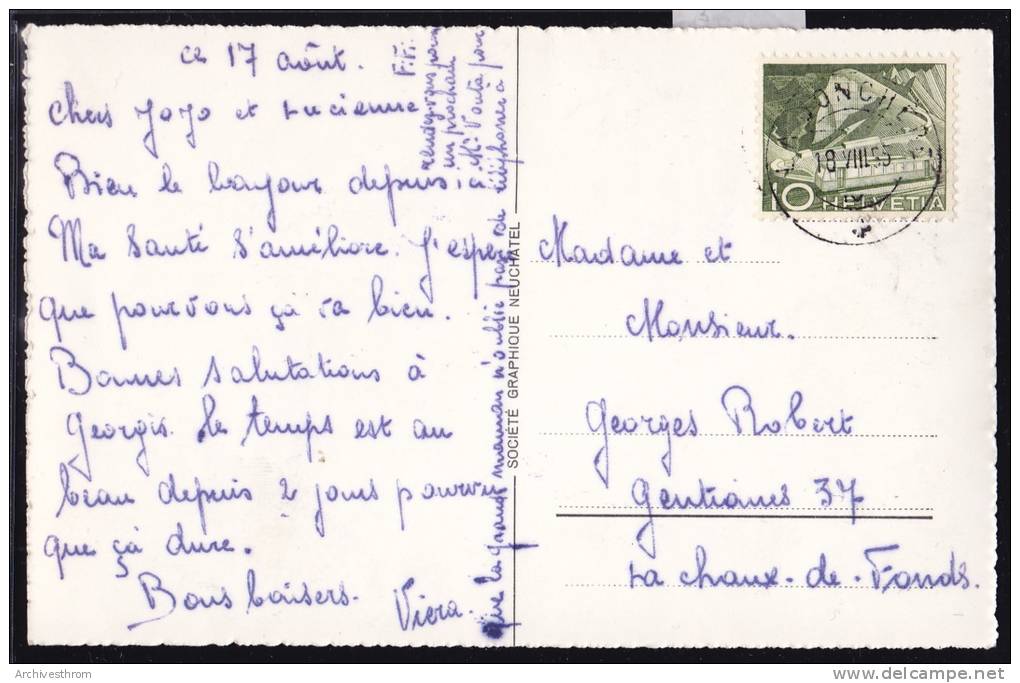 ce 17 août.
Chers Jojo et Lucienne
Bien le bonjour depuis ici
Ma santé s'améliore. J'espère
que pour vous ça va bien.
Bonnes salutations à
Georgis. le temps est au
beau depuis 2 jours pourvu
que ça dure.
Bons baisers.
Viera.
que la grand maman n'oublie pas de téléphoner à
Mr Vouta pour
un prochain
rendez-vous pour
F.F.
SOCIÉTÉ GRAPHIQUE NEUCHÂTEL
10 HELVETIA
18.VIII.55
Madame et
Monsieur.
Georges Robert
Gentianes 37
La Chaux-de-Fonds.
Archivesthrom
www.delcampe.net